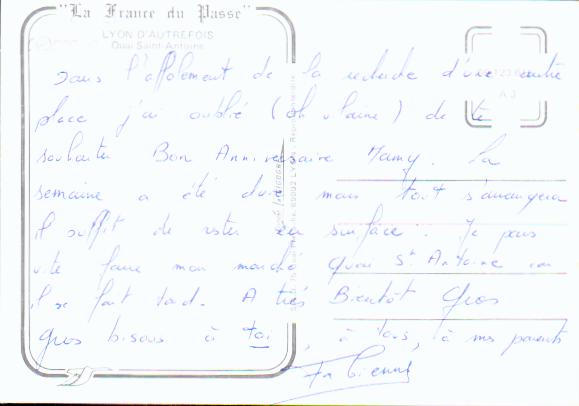 "La France du Passé"
LYON D'AUTREFOIS
Quai Saint-Antoine
Dans l'affolement de la recherche d'une autre
place j'ai oublié (oh vilaine) de te
souhaiter Bon Anniversaire Mamy. La
semaine a été dure mais tout s'arrangera
il suffit de rester en surface. Je pars
vite faire mon marché quai St Antoine car
il se fait tard. A très Bientôt Gros
gros bisous à toi, à tous, à mes parents
Fabienne